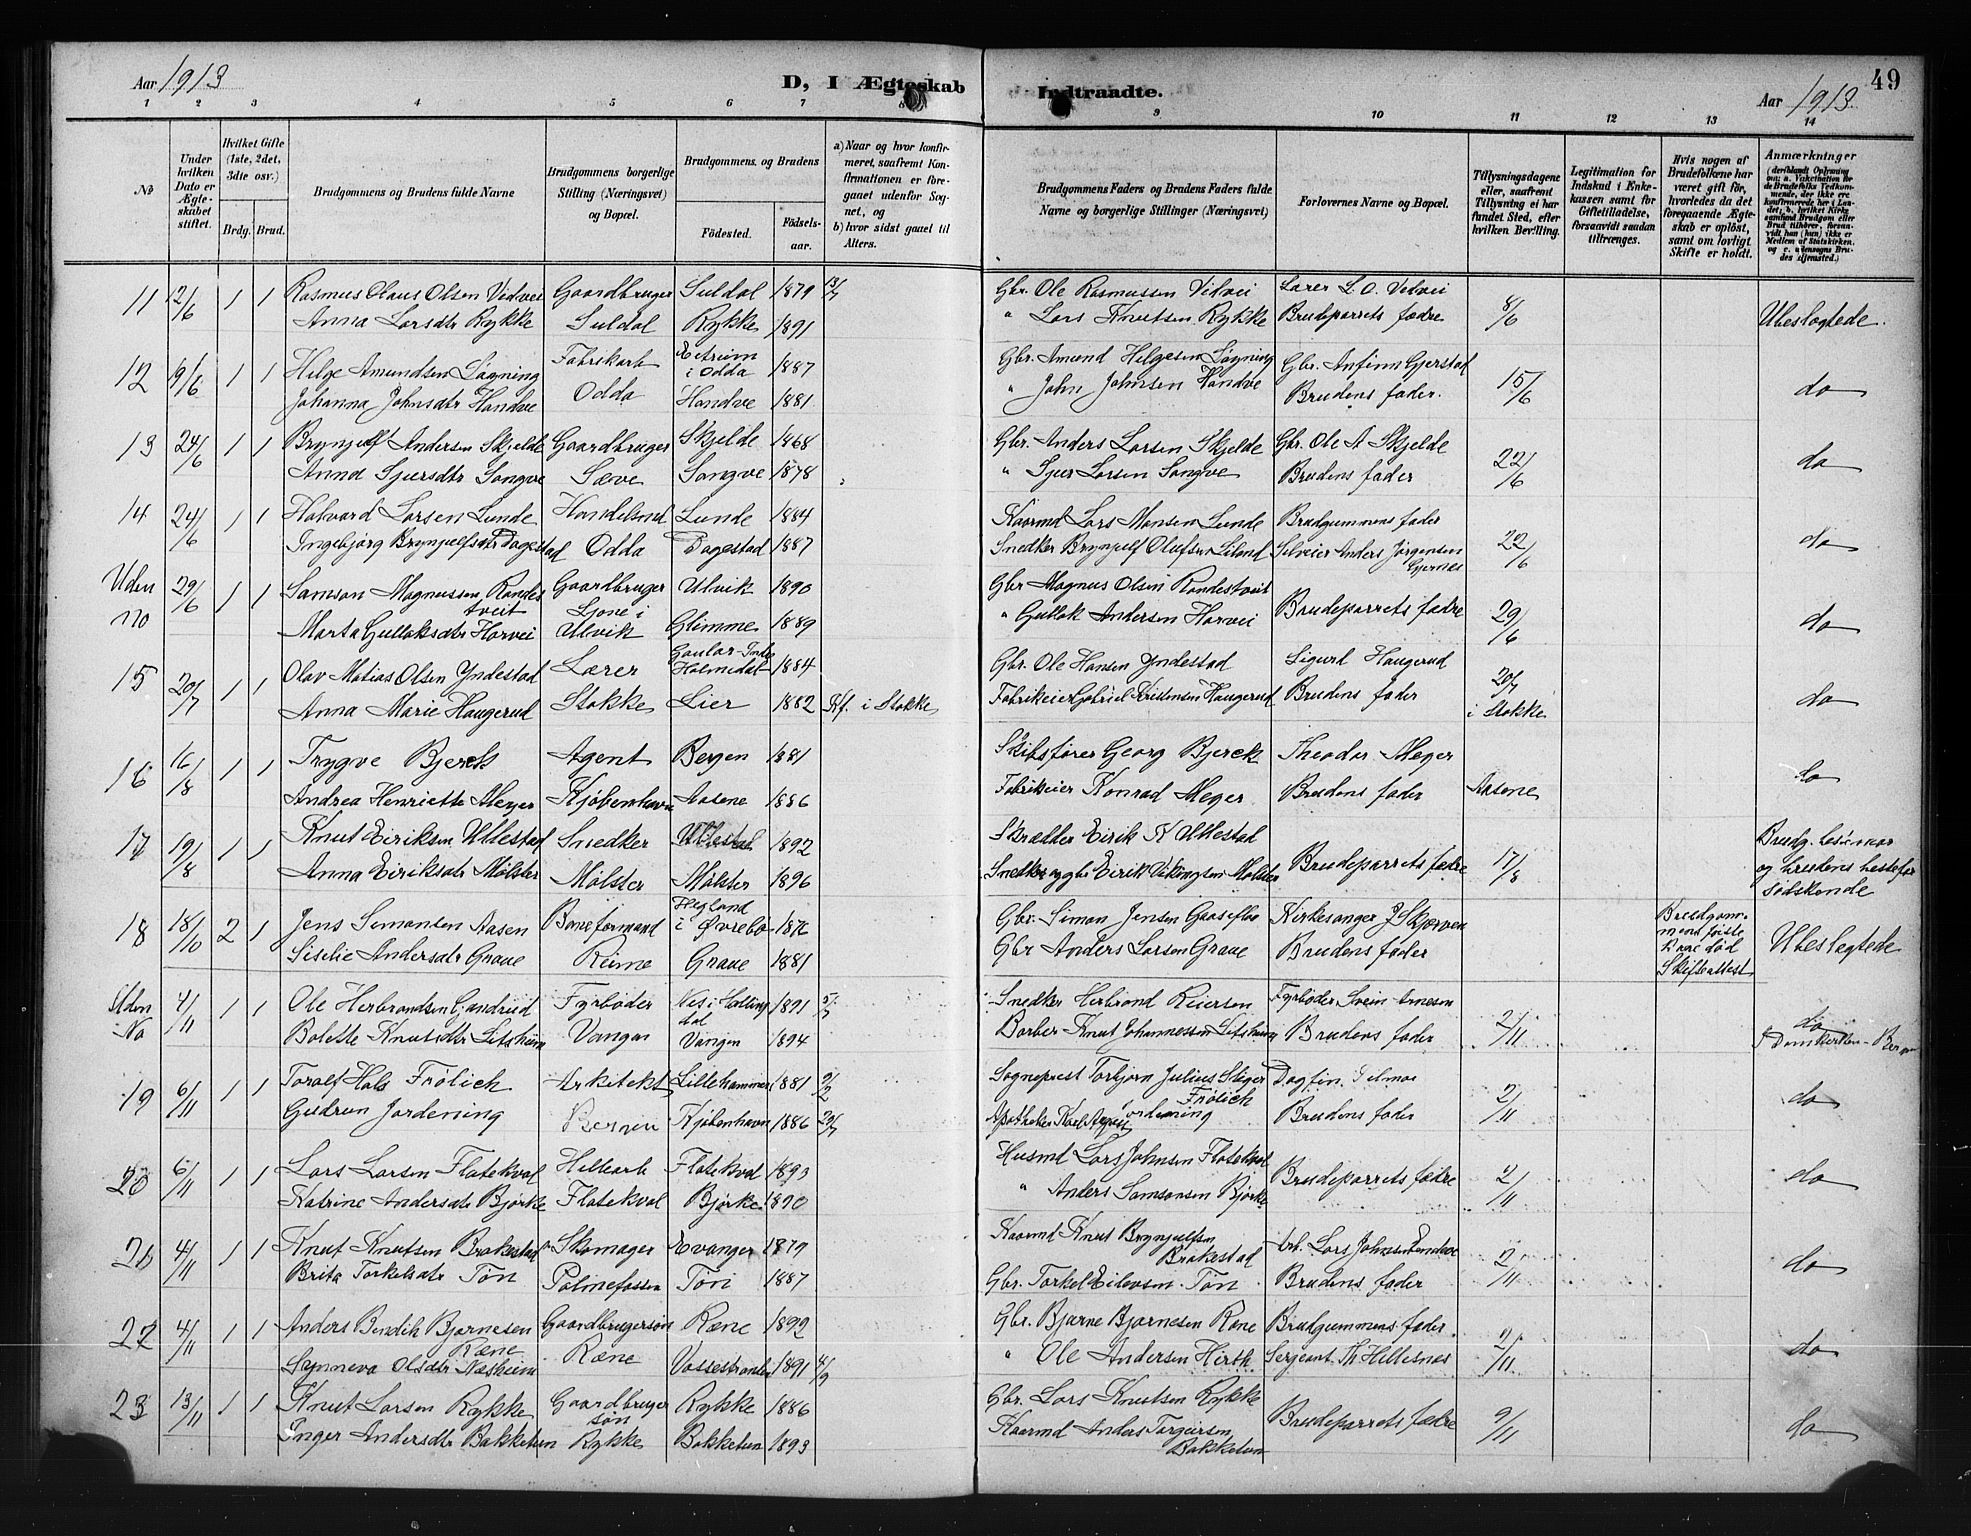 Aar 1913
D, I Ægteskab
Indtraadte.
Aar 1913
49
1 2 3 4 5 6 7 8 9 10 11 12 13 14
No
Under hvilken Dato er Ægteskabet stiftet.
Hvilket Gifte (1ste, 2det, 3die osv.)
Brdg. Brud.
Brudgommens og Brudens fulde Navne
Brudgommens borgerlige Stilling (Næringsvei) og Bopæl.
Brudgommens og Brudens
Födested. Födselsaar.
a) Naar og hvor konfirmeret, saafremt Konfirmationen er foregaaet udenfor Sognet, og
b) hvor sidst gaaet til Alters.
Brudgommens Faders og Brudens Faders fulde Navne og borgerlige Stillinger (Næringsvei)
Forlovernes Navne og Bopæl.
Tillysningsdagene eller, saafremt Tillysning ei har fundet Sted, efter hvilken Bevilling.
Legitimation for Indskud i Enkekassen samt for Giftetilladelse, forsaavidt saadan tiltrænges.
Hvis nogen af Brudefolkene har været gift før, hvorledes da det foregaaende Ægteskab er oplöst, samt om lovligt Skifte er holdt.
Anmærkninger
11 12/6 1 1 Rasmus Olaus Olsen Vidvei Gaardbruger Suldal 1879 13/7 Gbr. Ole Rasmussen Vidvei Lærer L. O. Vidvei 8/6
Anna Larsdtr Rykke Suldal Rykke 1891 " Lars Knutsen Rykke Brudeparrets fædre Ubeslegtede.
12 19/6 1 1 Helge Amundsen Løgning Fabrikarb Eitreim i Odda 1887 Gbr. Amund Helgesen Løgning Gbr. Anfinn Gjerstad 15/6 do
Johanna Johnsdtr Handve Odda Handve 1881 " John Johnsen Handve Brudens fader.
13 24/6 1 1 Brynjulf Andersen Skjelde Gaardbruger Skjelde 1868 Gbr. Anders Larsen Skjelde Gbr. Ole A Skjelde 22/6 do
Anna Sjursdtr Songve Sæve Songve 1878 " Sjur Larsen Songve Brudens fader
14 24/6 1 1 Halvard Larsen Lunde Handelsmd Lunde 1884 Kaarmd Lars Monsen Lunde Brudgummens fader 22/6 do
Ingebjørg Brynjulfsdtr Dagestad Odda Dagestad 1887 Snedker Brynjulf Olufsen Liland Selveier Anders Jørgensen Gjernes
Uden no 29/6 1 1 Samson Magnussen Randestveit Gaardbruger Ulvik 1890 Gbr Magnus Olsen Randestveit Brudeparrets fædre 29/6 do
Marta Gulleksdtr Horvei Ljone i Ulvik Glimme 1889 " Gullak Andersen Horvei
15 20/7 1 1 Olav Matias Olsen Yndestad Lærer Gaular-Indre Holmedal 1884 Gbr. Ole Hansen Yndestad Sigurd Haugerud 20/7 i Stokke do
Anna Marie Haugerud Stokke Lier 1882 Kf. i Stokke Fabrikeier Gabriel Kristensen Haugerud Brudens fader
16 16/8 1 1 Trygve Bjerck Agent Bergen 1881 Skibsfører Georg Bjerck Theodor Meyer do
Andrea Henriette Meyer Kjøbenhavn Aasene 1886 Fabrikeier Konrad Meyer Brudens fader Aasene
17 19/8 1 1 Knut Eiriksen Ullestad Snedker Ullestad 1892 Skrædder Eirik K Ullestad Brudeparrets fædre 17/8
Anna Eiriksdtr Mølster Mølster Mølster 1896 Snedker og gbr Eirik Vikingsen Mølster
Brudg. bestemor og brudens bestefar sødskende
18 18/10 2 1 Jens Simonsen Aasen Baneformand Hegland i Øvrebø 1876 Gbr. Simon Jensen Gaaseflaa Kirkesanger J Skjerven
Siselie Andersdtr Graue Reime Graue 1881 Gbr Anders Larsen Graue Brudens fader
Brudgommens første kone død Skifteattest Ubeslegtede
Uden No 4/11 1 1 Ole Herbrandsen Gjandrud Fyrbøder Nes i Hallingdal 1891 5/7 Snedker Herbrand Reiersen Fyrbøder Svein Arnesen 2/11 do
Bolette Knutsdtr Litsheim Vangen Vangen 1894 Barber Knut Johannessen Litsheim Brudens fader
19 6/11 1 1 Toralf Hals Frølich Arkitekt Lillehammer 1881 9/2 Sogneprest Torbjørn Julius Steger Frølich Dagfin 2/11 do
Gudrun Jordening Bergen Kjøbenhavn 1886 20/7 Apotheker Karl August Jordening Brudens fader
20 6/11 1 1 Lars Larsen Flatekval Hellearb Flatekval 1893 Husmd Lars Johnsen Flatekval Brudeparrets fædre 2/11 do
Katrine Andersdtr Bjørke Flatekval Bjørke 1890 " Anders Samsonsen Bjørke
21 4/11 1 1 Knut Knutsen Brakestad Skomager Evanger 1879 Kaarmd Knut Brynjulfsen Brakestad Arb. Lars Johnsen 2/11 do
Brita Torkelsdtr Tøn Palmefossen Tøn 1887 Gbr. Torkel Eilevsen Tøn Brudens fader
22 4/11 1 1 Anders Bendik Bjarnesen Ræne Gaardbrugersøn Ræne 1892 Gbr. Bjarne Bjarnesen Rene Brudgummens fader 2/11 do
Synneva Olsdtr Næsheim Ræne Vossestranden 1891 4/9 " Ole Andersen Hirth Sergeant Th Hillesnes
23 13/11 1 1 Knut Larsen Rykke Gaardbrugersøn Rykke 1886 Gbr. Lars Knutsen Rykke Brudeparrets fædre 9/11 do
Inger Andersdtr Bakketun Rykke Bakketun 1893 Kaarmd Anders Torgeirsen Bakketun